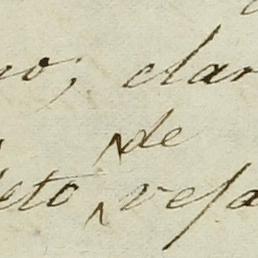 no; clar
de
eto vesa